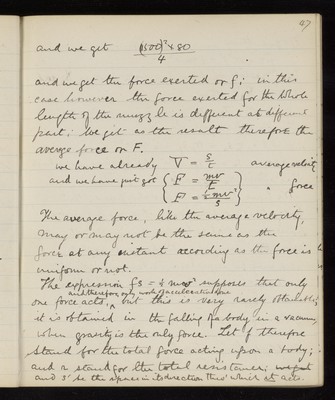 47
and we get (1500)² × 80
4
and we get the force exerted or f; in this
case however the force exerted for the whole
length of the muzzle is different at different
part; we get as the result therefore the
average force or F.
we have already V = s/t average velocity
and we have just got { F = mv/t
F = ½mv²/s } " force
The average force, like the average velocity,
may or may not be the same as the
force at any instant according as the force is
uniform or not.
The expression fs = ½ mv² supposes that only
and therefore only work of acceleration done
one force acts, but this is very rarely obtainable,
it is obtained in the falling of a body in a vacuum,
when gravity is the only force. Let f therefore
stand for the total force acting upon a body;
and r stand for the total resistances;
and s' be the space in its direction thro' which it acts.